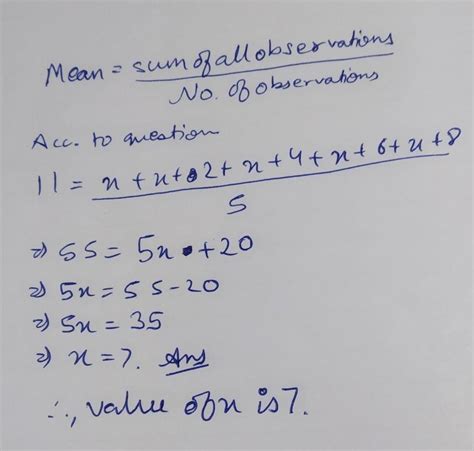 Mean = sum of all observations
No. of observations
Acc. to question
11 = x + x + 2 + x + 4 + x + 6 + x + 8
5
⇒ 55 = 5x + 20
⇒ 5x = 55 - 20
⇒ 5x = 35
⇒ x = 7. Ans
∴, value of x is 7.